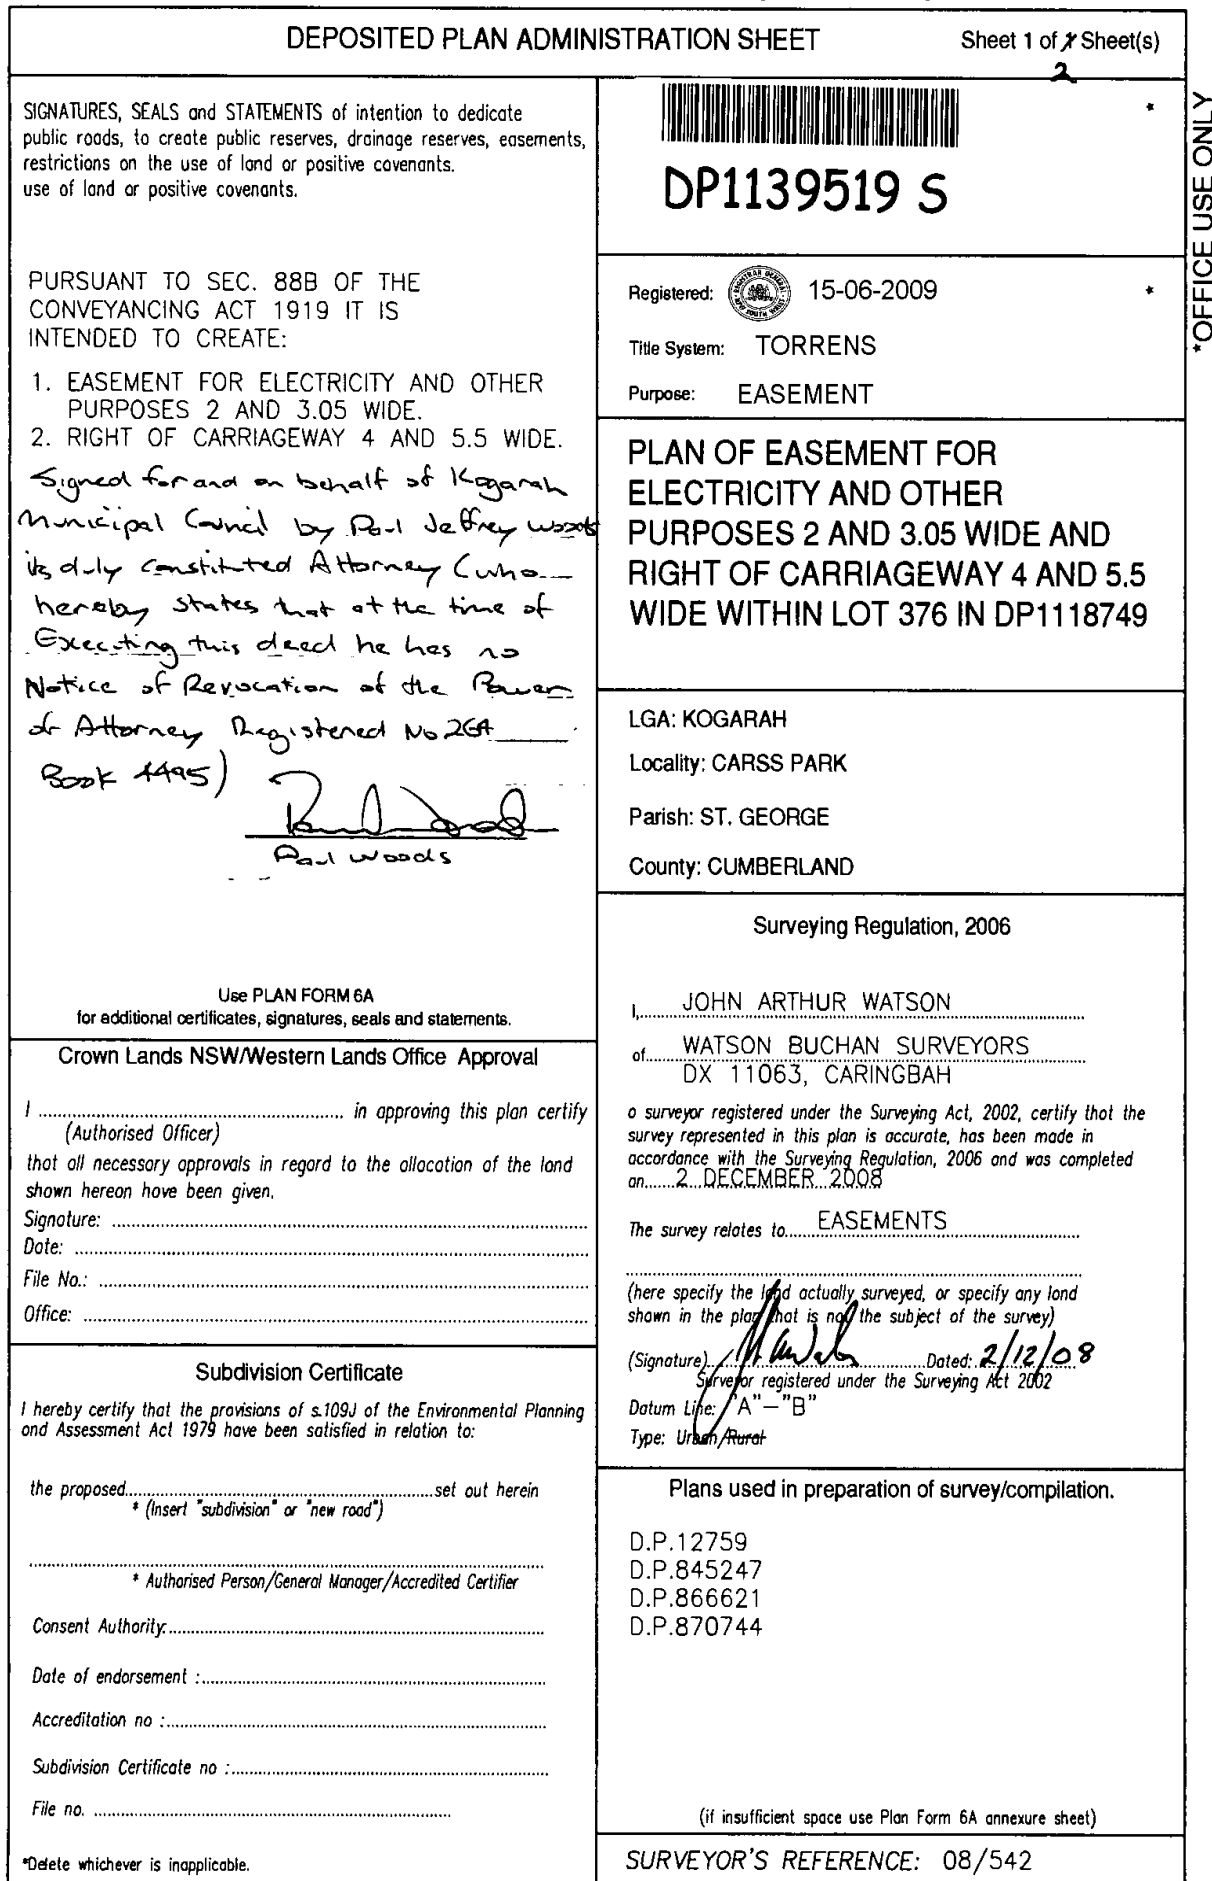 DEPOSITED PLAN ADMINISTRATION SHEET
Sheet 1 of 2 Sheet(s)
SIGNATURES, SEALS and STATEMENTS of intention to dedicate
public roads, to create public reserves, drainage reserves, easements,
restrictions on the use of land or positive covenants.
use of land or positive covenants.
PURSUANT TO SEC. 88B OF THE
CONVEYANCING ACT 1919 IT IS
INTENDED TO CREATE:
1. EASEMENT FOR ELECTRICITY AND OTHER
PURPOSES 2 AND 3.05 WIDE.
2. RIGHT OF CARRIAGEWAY 4 AND 5.5 WIDE.
Signed for and on behalf of Kogarah
Municipal Council by Paul Jeffrey Woods
its duly constituted Attorney (who
hereby states that at the time of
Executing this deed he has no
Notice of Revocation of the Power
of Attorney Registered No 264
Book 4495)
Paul Woods
Use PLAN FORM 6A
for additional certificates, signatures, seals and statements.
Crown Lands NSW/Western Lands Office Approval
I ........ in approving this plan certify
(Authorised Officer)
that all necessary approvals in regard to the allocation of the land
shown hereon have been given.
Signature: ........
Date: ........
File No.: ........
Office: ........
Subdivision Certificate
I hereby certify that the provisions of s.109J of the Environmental Planning
and Assessment Act 1979 have been satisfied in relation to:
the proposed........set out herein
* (Insert "subdivision" or "new road")
* Authorised Person/General Manager/Accredited Certifier
Consent Authority:........
Date of endorsement :........
Accreditation no :........
Subdivision Certificate no :........
File no. ........
*Delete whichever is inapplicable.
*
DP1139519 S
Registered: 15-06-2009 *
Title System: TORRENS
Purpose: EASEMENT
PLAN OF EASEMENT FOR
ELECTRICITY AND OTHER
PURPOSES 2 AND 3.05 WIDE AND
RIGHT OF CARRIAGEWAY 4 AND 5.5
WIDE WITHIN LOT 376 IN DP1118749
LGA: KOGARAH
Locality: CARSS PARK
Parish: ST. GEORGE
County: CUMBERLAND
Surveying Regulation, 2006
I, JOHN ARTHUR WATSON
of WATSON BUCHAN SURVEYORS
DX 11063, CARINGBAH
a surveyor registered under the Surveying Act, 2002, certify that the
survey represented in this plan is accurate, has been made in
accordance with the Surveying Regulation, 2006 and was completed
on 2 DECEMBER 2008
The survey relates to EASEMENTS
(here specify the land actually surveyed, or specify any land
shown in the plan that is not the subject of the survey)
(Signature) Dated: 2/12/08
Surveyor registered under the Surveying Act 2002
Datum Line: "A"-"B"
Type: Urban/Rural
Plans used in preparation of survey/compilation.
D.P.12759
D.P.845247
D.P.866621
D.P.870744
(if insufficient space use Plan Form 6A annexure sheet)
SURVEYOR'S REFERENCE: 08/542
*OFFICE USE ONLY